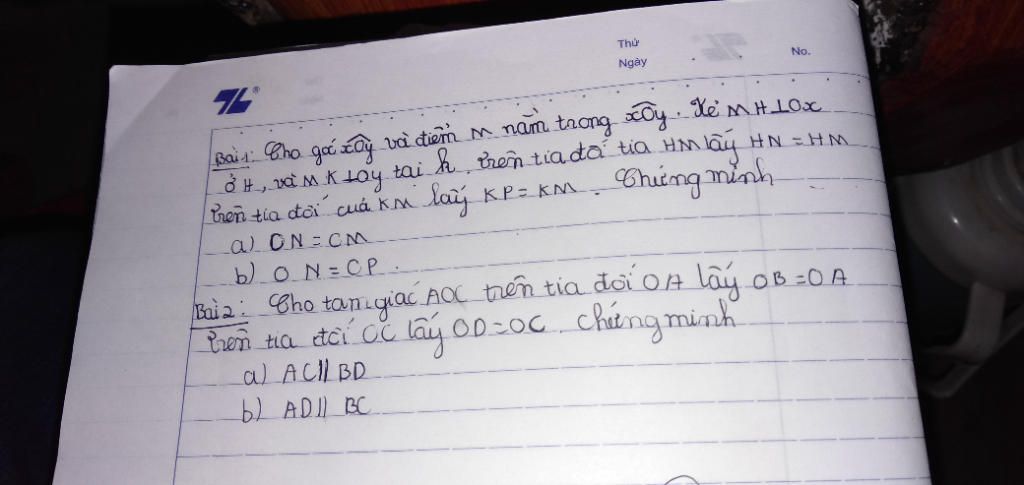 Thứ
Ngày
No.
Bài 1: Cho góc xOy và điểm M nằm trong xOy. Kẻ MH⊥Ox
ở H, và MK⊥Oy tại k. trên tia đối tia HM lấy HN = HM
trên tia đối cuả KM lấy KP = KM. Chứng minh
a) ON = OM
b) ON = OP.
Bài 2: Cho tam giác AOC trên tia đối OA lấy OB = OA
trên tia đối OC lấy OD = OC. Chứng minh
a) AC // BD
b) AD // BC